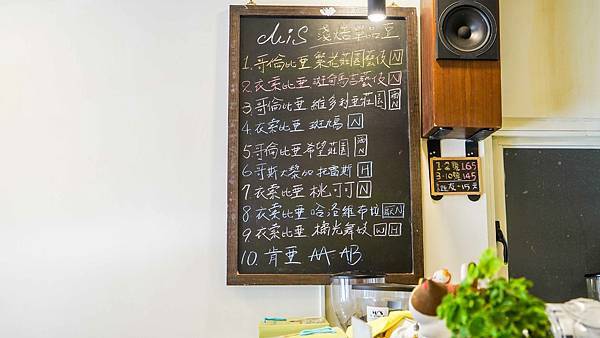 淺焙單品豆
1. 哥倫比亞 繁花莊園藝伎 N
2. 衣索比亞 斑奇馬吉藝伎 N
3. 哥倫比亞 維多利亞莊園 N
4. 衣索比亞 斑鳩 N
5. 哥倫比亞希望莊園 N
6. 哥斯大黎加 拉雷斯 H
7. 衣索比亞 桃可可 N
8. 衣索比亞 哈洛維布拉 N
9. 衣索比亞 橘光舞妓 WH
10. 肯亞 AA AB
1-2號 165
3-10號 145
-15元